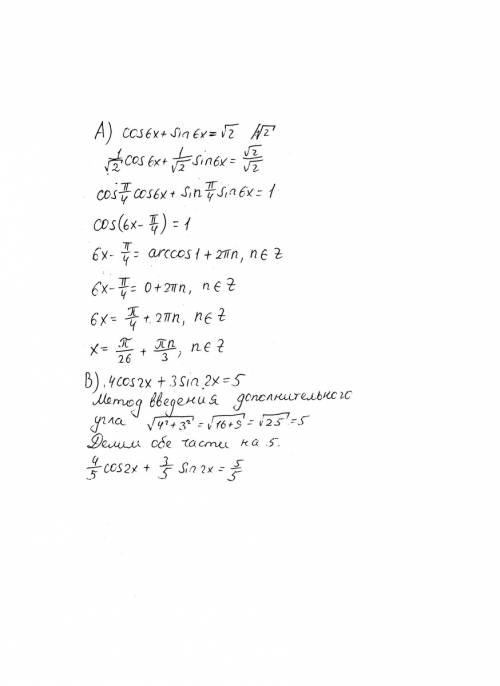 A) cos6x + sin6x = √2 /:√2
1/√2 cos6x + 1/√2 sin6x = √2/√2
cos π/4 cos6x + sin π/4 sin6x = 1
cos(6x - π/4) = 1
6x - π/4 = arccos1 + 2πn, n∈Z
6x - π/4 = 0 + 2πn, n∈Z
6x = π/4 + 2πn, n∈Z
x = π/26 + πn/3, n∈Z
B) 4cos2x + 3sin2x = 5
Метод введения дополнительного
угла √(4²+3²) = √(16+9) = √25 = 5
Делим обе части на 5.
4/5 cos2x + 3/5 sin2x = 5/5